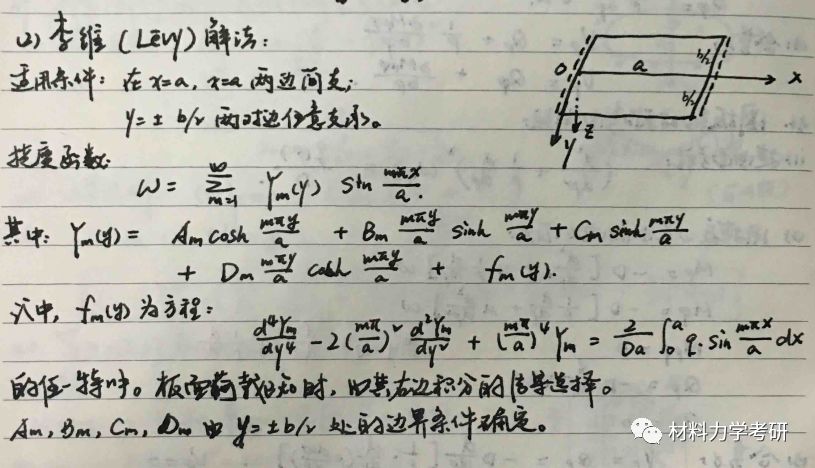 (2) 李维 (Levy) 解法:
适用条件: 在 x=a, x=a 两边简支;
y=± b/2 两对边任意支承。
挠度函数:
w = ∑_{m=1}^{∞} Y_m(y) sin \frac{mπx}{a}.
其中: Y_m(y) = A_m cosh \frac{mπy}{a} + B_m \frac{mπy}{a} sinh \frac{mπy}{a} + C_m sinh \frac{mπy}{a}
+ D_m \frac{mπy}{a} cosh \frac{mπy}{a} + f_m(y).
式中, f_m(y) 为方程:
\frac{d^4Y_m}{dy^4} - 2(\frac{mπ}{a})^2 \frac{d^2Y_m}{dy^2} + (\frac{mπ}{a})^4 Y_m = \frac{2}{Da} ∫_0^a q·sin \frac{mπx}{a} dx
的任一特解。板面荷载已知时, 由其右边积分的结果选择。
A_m, B_m, C_m, D_m 由 y=±b/2 处的边界条件确定。
O a b/2 b/2 x y z
材料力学考研